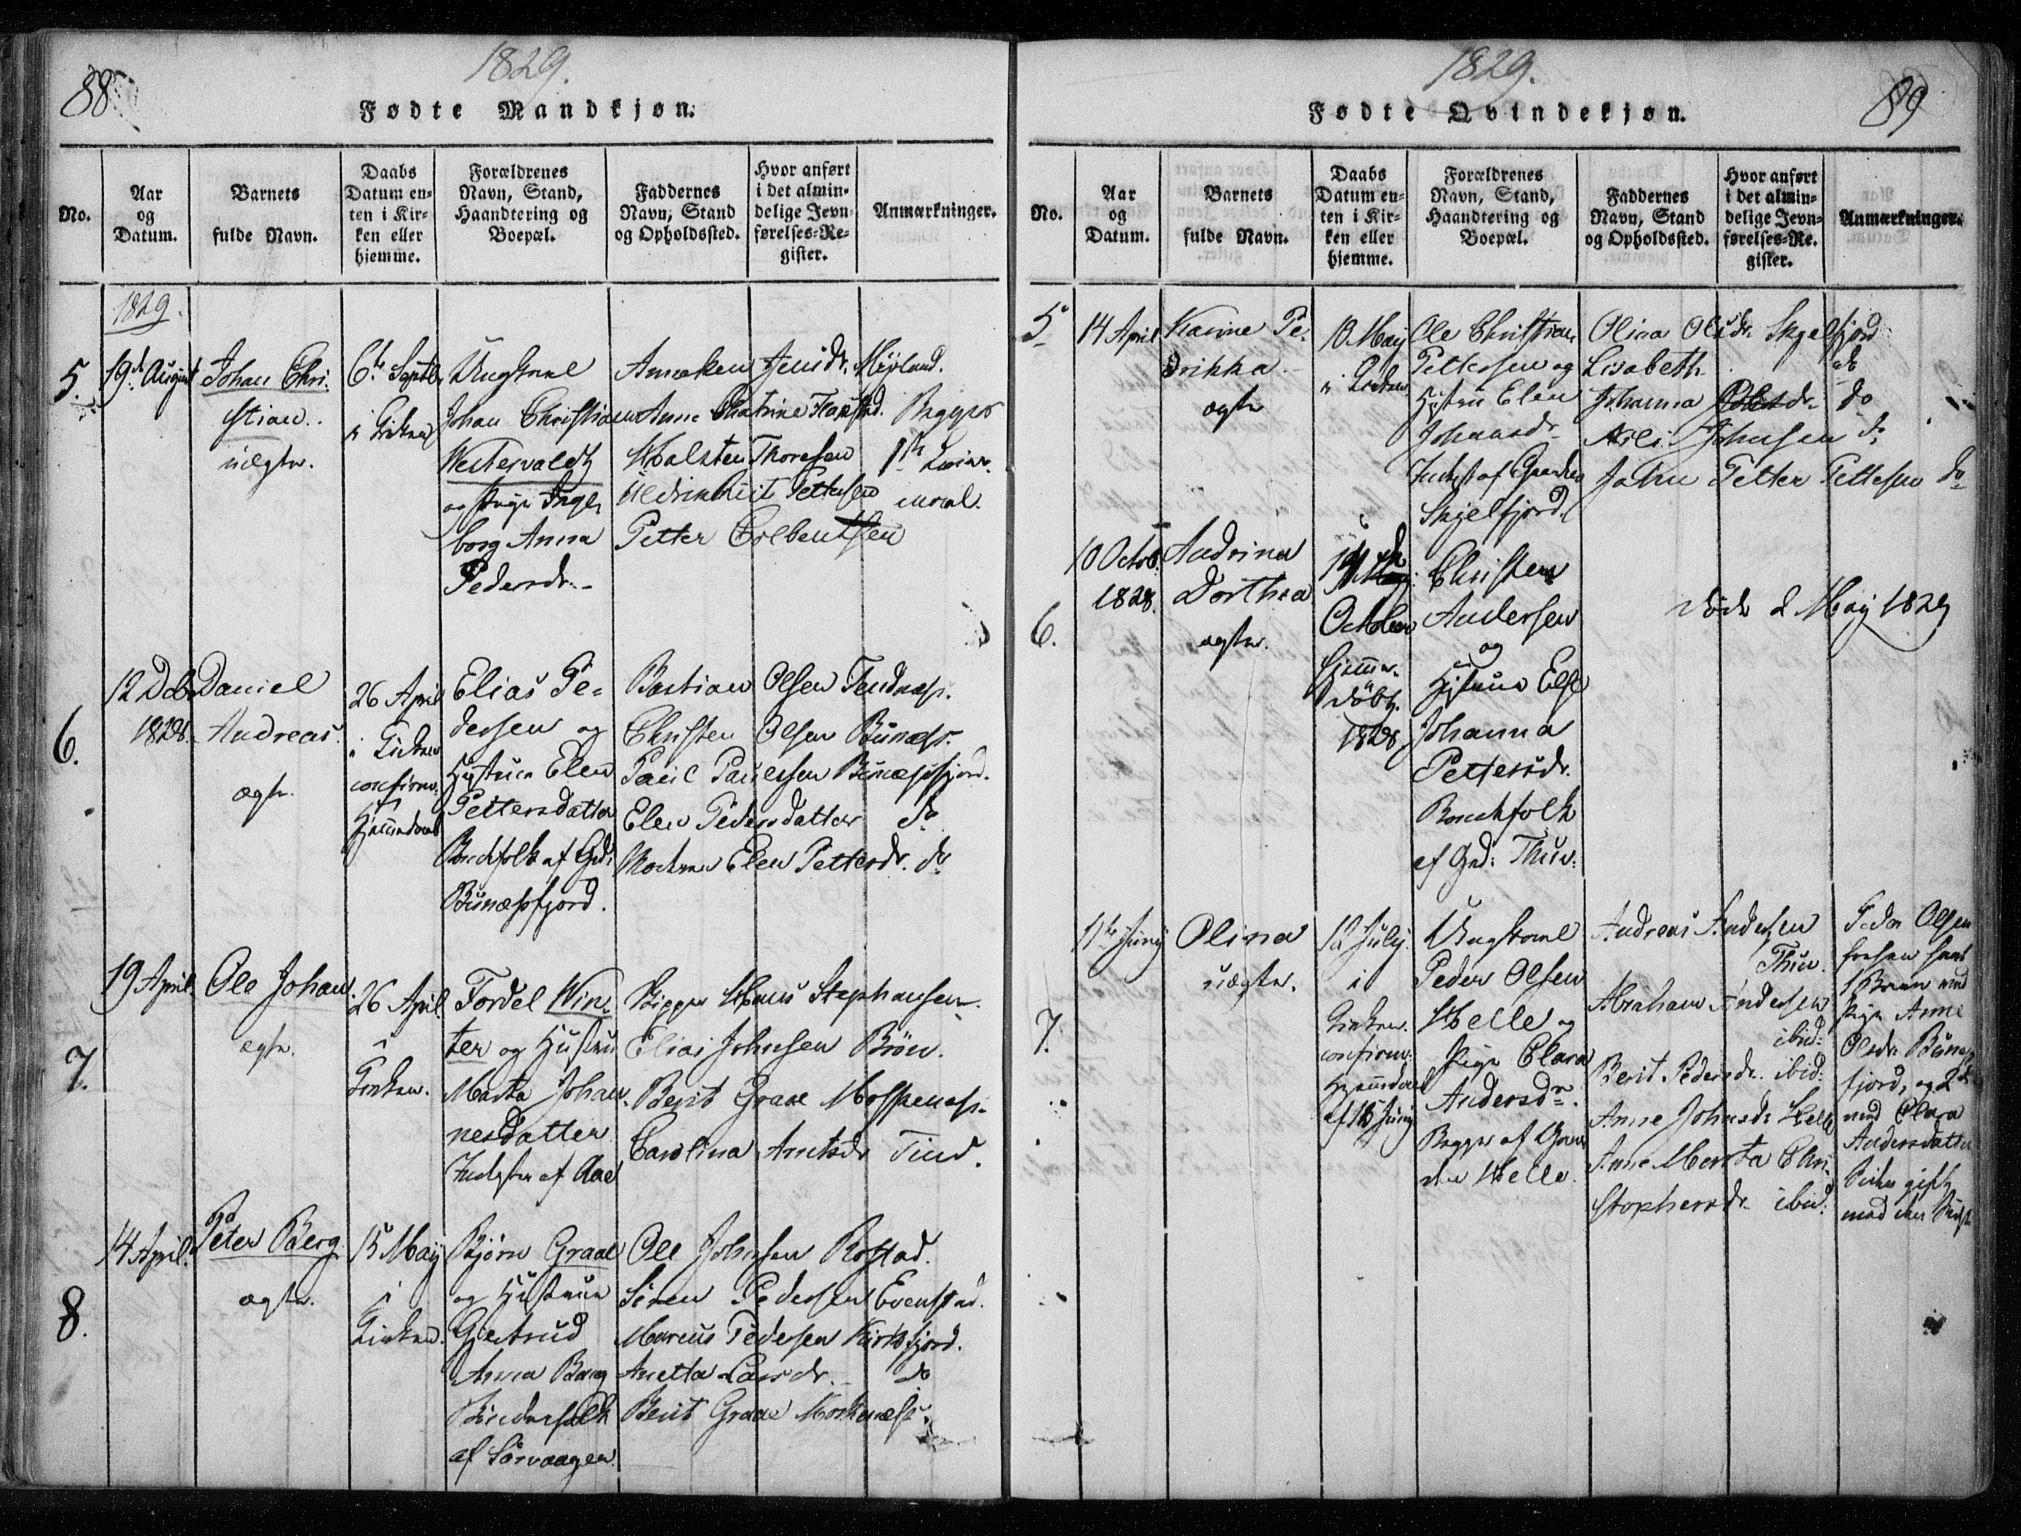 88
1829.
Fødte Mandkjøn.
No.
Aar
og
Datum.
Barnets
fulde Navn.
Daabs
Datum en-
ten i Kir-
ken eller
hjemme.
Forældrenes
Navn, Stand,
Haandtering og
Boepæl.
Faddernes
Navn, Stand
og Opholdssted.
Hvor anført
i det almin-
delige Jevn-
førelses-Re-
gister.
Anmærkninger.
1829.
5.
19d August
Johan Chri-
stian.
uægte.
6te Septbr
i Kirken
Ungkarl
Johan Christian
Westervaldt
og Pige Inge-
borg Anna
Pedersdr.
Jensdr.
Anne Chatrine
Halsten Thoresen
Pettersen
Petter
Begges
1ste Leier-
maal.
6.
12 Dcbr
1828.
Daniel
Andreas.
ægte.
26 April
i Kirken
confirm:
Hjemmedaab
Elias Pe-
dersen og
Hustrue Elen
Pettersdatter
af Grd:
Bunæsfjord.
Bastian Olsen Tendnæss.
Christen Olsen Bunæss.
Paul Paulssen Bunæssfjord.
Elen Pedersdatter do
Modren Elen Pettersdr. do
7.
19 April.
Ole Johan
ægte.
26 April
i
Kirken.
Fordel Win-
ter og Hustru
Marta Johan-
nesdatter
af Aae
Hans Stephansen
Elias Johnsen
Berit Graae Moskenæss.
Carolina Arntsdr Tind.
8.
14 April.
Peter Berg
ægte.
15 May
i
Kirken.
Bjørn Graae
og Hustrue
Gjertrud
Anna Bang
af Sørvaagen.
Ole Johnsen Rostad.
Søren Pedersen Evenstad.
Marcus Pedersen Kirkfjord.
Anetta Larsdr. do
Berit Graae Moskenæss.
1829.
89
Fødte Qvindekjøn.
No.
Aar
og
Datum.
Barnets
fulde Navn.
Daabs
Datum en-
ten i Kir-
ken eller
hjemme.
Forældrenes
Navn, Stand,
Haandtering og
Boepæl.
Faddernes
Navn, Stand
og Opholdssted.
Hvor anført
i det almin-
delige Jevn-
førelses-Re-
gister.
Anmærkninger.
5
14 April
Karine Pe-
drikka
ægte
10 May
i Kirken
Ole Christian
Pettersen og
Hustru Elen
Johansdr.
af Gaarden
Skjelfjord.
Olina Olsdr. Skjelfjord
Lisabeth do
Johanna Olsdr. do
Nils Johnsen do
John Petter Pettersen do
6.
10 Octbr.
1828.
Andrina
Dorthea
ægte.
October
hjemme-
døbt.
1828
Christen
Andersen
og
Hustrue Else
Johanna
Pettersdr.
af Grd: Thuv.
døde 2 May 1829
7.
11te Juny
Olina
uægte.
12 July
i
Kirken.
confirm:
Hjemmedaab
af 15 Juny
Ungkarl
Peder Olsen
Helle og
Pige Clara
Andersdr.
Begge af Gaar-
den Helle.
Andreas Andersen
Thuv.
Abraham Andersen
ibid:
Berit Pedersdr. ibid:
Anne Johnsdr Helle
Anne Merete Chri-
stophersdr ibid:
Peder Olsen
1 Barn med
Pige Anne
Olsdr Bunæs-
fjord, og 2d
med Clara
Andersdatter
gift
med